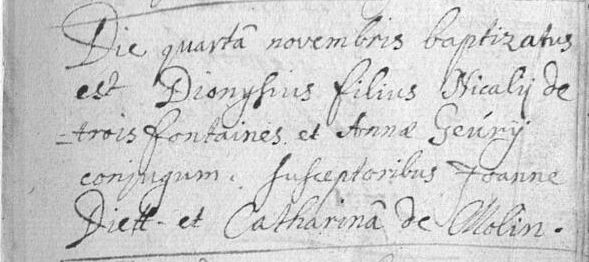 Die quartâ novembris baptizatus
est Dionysius filius Nicalij de
-trois fontaines et Annæ Geúrij
conjugum. Susceptoribus Joanne
Diett et Catharinâ de Molin.